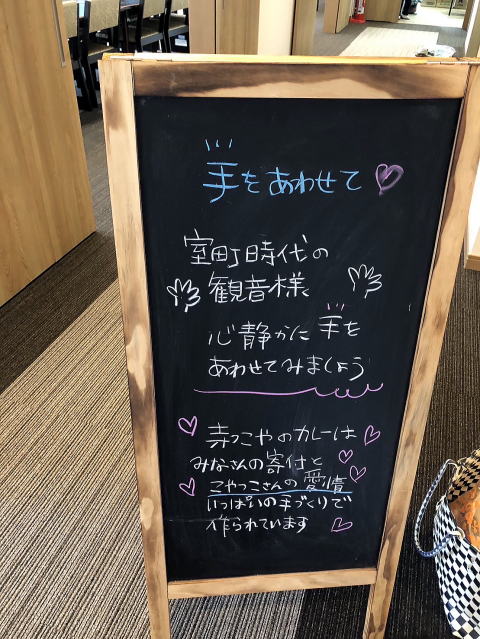 手をあわせて
室町時代の
観音様
心静かに手を
あわせてみましょう
寺っこやのカレーは
みなさんの寄付と
こやっこさんの愛情
いっぱいの手づくりで
作られています